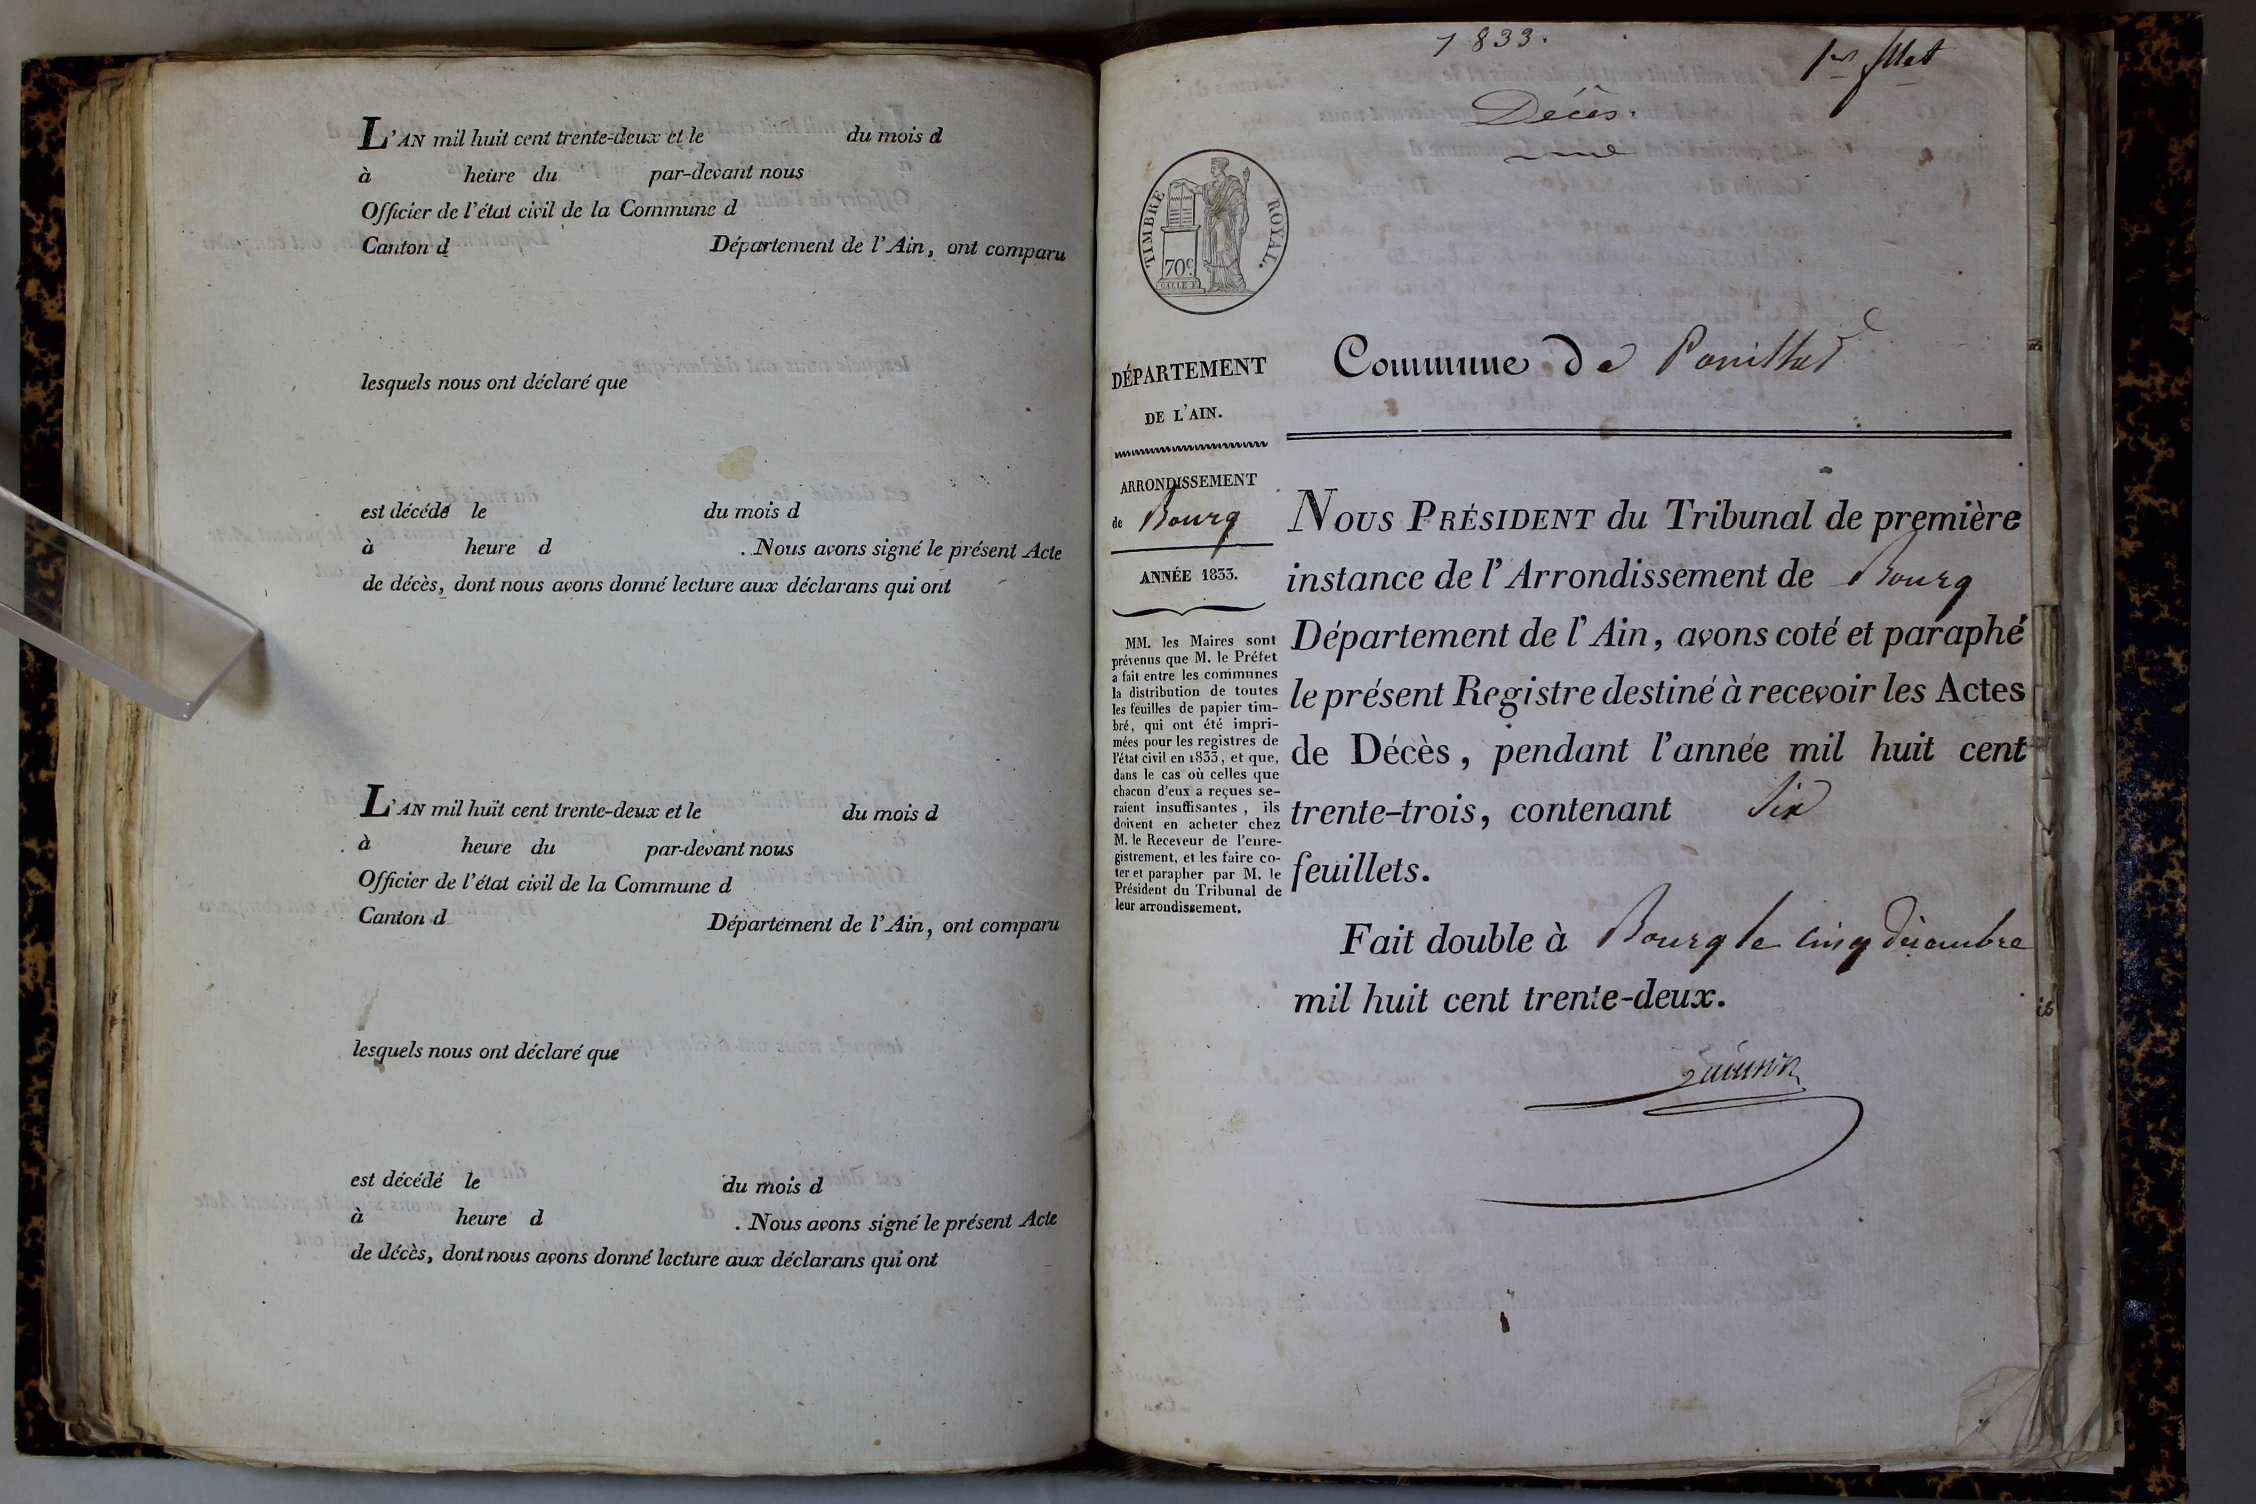 L'AN mil huit cent trente-deux et le du mois d
à heure du par-devant nous
Officier de l'état civil de la Commune d
Canton d Département de l'Ain, ont comparu
lesquels nous ont déclaré que
est décédé le du mois d
à heure d . Nous avons signé le présent Acte
de décès, dont nous avons donné lecture aux déclarans qui ont
L'AN mil huit cent trente-deux et le du mois d
à heure du par-devant nous
Officier de l'état civil de la Commune d
Canton d Département de l'Ain, ont comparu
lesquels nous ont déclaré que
est décédé le du mois d
à heure d . Nous avons signé le présent Acte
de décès, dont nous avons donné lecture aux déclarans qui ont
1833.
1er fllet
Décès.
TIMBRE ROYAL.
70c
DÉPARTEMENT
DE L'AIN.
ARRONDISSEMENT
de Bourg
ANNÉE 1833.
MM. les Maires sont
prévenus que M. le Préfet
a fait entre les communes
la distribution de toutes
les feuilles de papier tim-
bré, qui ont été impri-
mées pour les registres de
l'état civil en 1833, et que,
dans le cas où celles que
chacun d'eux a reçues se-
raient insuffisantes, ils
doivent en acheter chez
M. le Receveur de l'enre-
gistrement, et les faire co-
ter et parapher par M. le
Président du Tribunal de
leur arrondissement.
Commune de Pouillat
NOUS PRÉSIDENT du Tribunal de première
instance de l'Arrondissement de Bourg
Département de l'Ain, avons coté et paraphé
le présent Registre destiné à recevoir les Actes
de Décès, pendant l'année mil huit cent
trente-trois, contenant Six
feuillets.
Fait double à Bourg le cinq décembre
mil huit cent trente-deux.